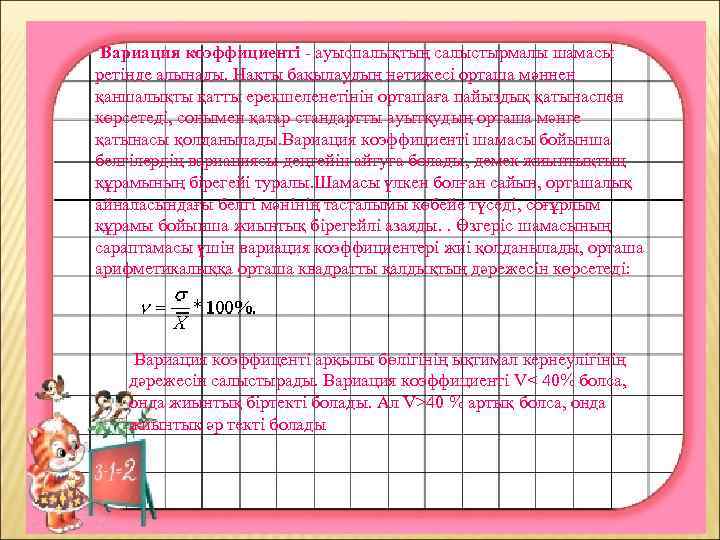 Вариация коэффициенті - ауыспалықтың салыстырмалы шамасы
ретінде алынады. Нақты бақылаудың нәтижесі орташа мәннен
қаншалықты қатты ерекшеленетінін орташаға пайыздық қатынаспен
көрсетеді, сонымен қатар стандартты ауытқудың орташа мәнге
қатынасы қолданылады.Вариация коэффициенті шамасы бойынша
белгілердің вариациясы деңгейін айтуға болады, демек жиынтықтың
құрамының бірегейі туралы.Шамасы үлкен болған сайын, орташалық
айналасындағы белгі мәнінің тасталымы көбейе түседі, соғұрлым
құрамы бойынша жиынтық бірегейлі азаяды. . Өзгеріс шамасының
сараптамасы үшін вариация коэффициентері жиі қолданылады, орташа
арифметикалыққа орташа квадратты қалдықтың дәрежесін көрсетеді:
ν = σ / X̅ * 100%.
Вариация коэффиценті арқылы бөлігінің ықтимал кернеулігінің
дәрежесін салыстырады. Вариация коэффициенті V< 40% болса,
онда жиынтық біртекті болады. Ал V>40 % артық болса, онда
жиынтық әр текті болады
3-1=2